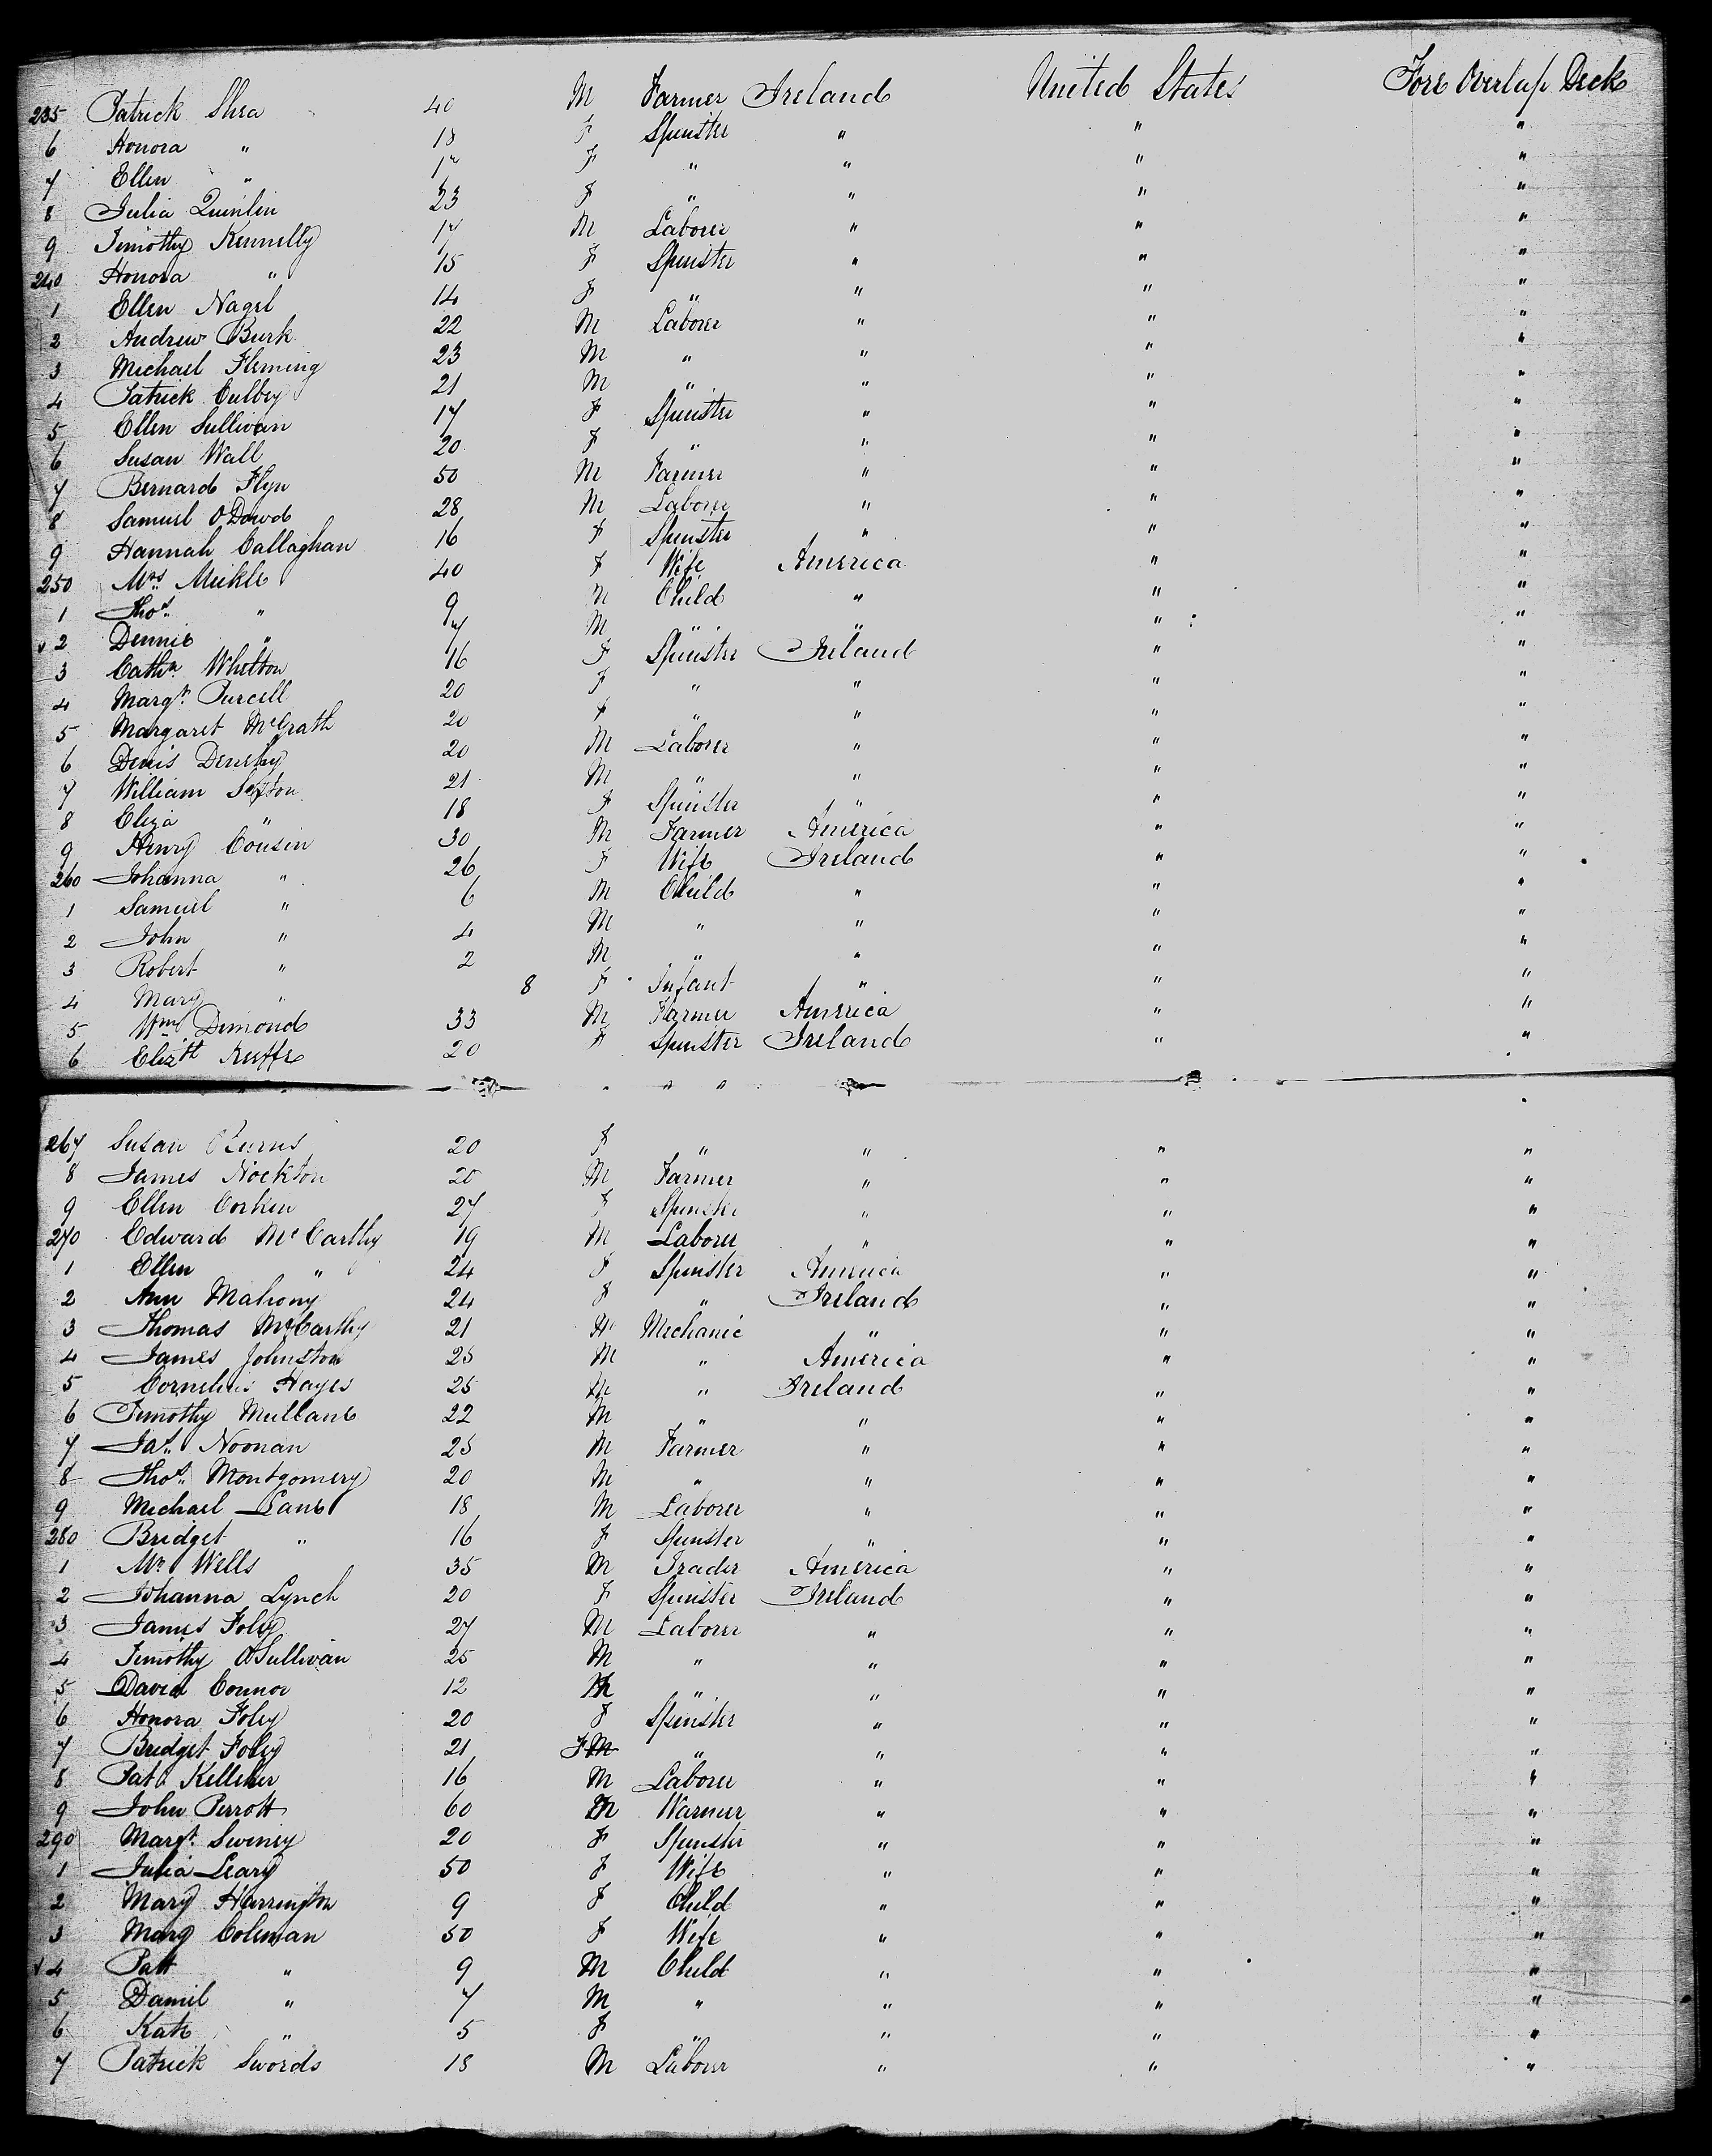 235 Patrick Shea 40 M Farmer Ireland United States Fore Overlap Deck
6 Honora " 18 F Spinster " " "
7 Ellen " 17 F " " " "
8 Julia Quinlin 23 F " " " "
9 Timothy Kennelly 17 M Laborer " " "
240 Honora " 15 F Spinster " " "
1 Ellen Nagel 14 F " " " "
2 Andrew Burk 22 M Laborer " " "
3 Michael Fleming 23 M " " " "
4 Patrick Culbey 21 M " " " "
5 Ellen Sullivan 17 F Spinster " " "
6 Susan Wall 20 F " " " "
7 Bernard Flyn 50 M Farmer " " "
8 Samuel O'Dowd 28 M Laborer " " "
9 Hannah Callaghan 16 F Spinster " " "
250 Mrs Meikle 40 F Wife America " "
1 Thos. " 9 M Child " " "
2 Dennis " 7 M " " " "
3 Cathn Whelton 16 F Spinster Ireland " "
4 Margt. Purcell 20 F " " " "
5 Margaret McGrath 20 F " " " "
6 Denis Denehy 20 M Laborer " " "
7 William Sexton 21 M " " " "
8 Eliza " 18 F Spinster " " "
9 Henry Cousin 30 M Farmer America " "
260 Johanna " 26 F Wife Ireland " "
1 Samuel " 6 M Child " " "
2 John " 4 M " " " "
3 Robert " 2 M " " " "
4 Mary " 8 F Infant " " "
5 Wm Dimond 33 M Farmer America " "
6 Elizth Keeffe 20 F Spinster Ireland " "
267 Susan Burns 20 F " " " "
8 James Nockton 20 M Farmer " " "
9 Ellen Corken 27 F Spinster " " "
270 Edward McCarthy 19 M Laborer " " "
1 Ellen " 24 F Spinster America " "
2 Ann Mahony 24 F " Ireland " "
3 Thomas McCarthy 21 M Mechanic " " "
4 James Johnston 25 M " America " "
5 Cornelius Hayes 25 M " Ireland " "
6 Timothy Mullane 22 M " " " "
7 Jas. Noonan 25 M Farmer " " "
8 Thos. Montgomery 20 M " " " "
9 Michael Lane 18 M Laborer " " "
280 Bridget " 16 F Spinster " " "
1 Mr Wells 35 M Trader America " "
2 Johanna Lynch 20 F Spinster Ireland " "
3 James Foley 27 M Laborer " " "
4 Timothy O'Sullivan 25 M " " " "
5 David Connor 12 M " " " "
6 Honora Foley 20 F Spinster " " "
7 Bridget Foley 21 F M " " " "
8 Pat Kelleher 16 M Laborer " " "
9 John Perrott 60 M Warmer " " "
290 Margt. Swiney 20 F Spinster " " "
1 Julia Leary 50 F Wife " " "
2 Mary Harrington 9 F Child " " "
3 Mary Coleman 50 F Wife " " "
4 Patt " 9 M Child " " "
5 Daniel " 7 M " " " "
6 Kate " 5 F " " " "
7 Patrick Swords 18 M Laborer " " "